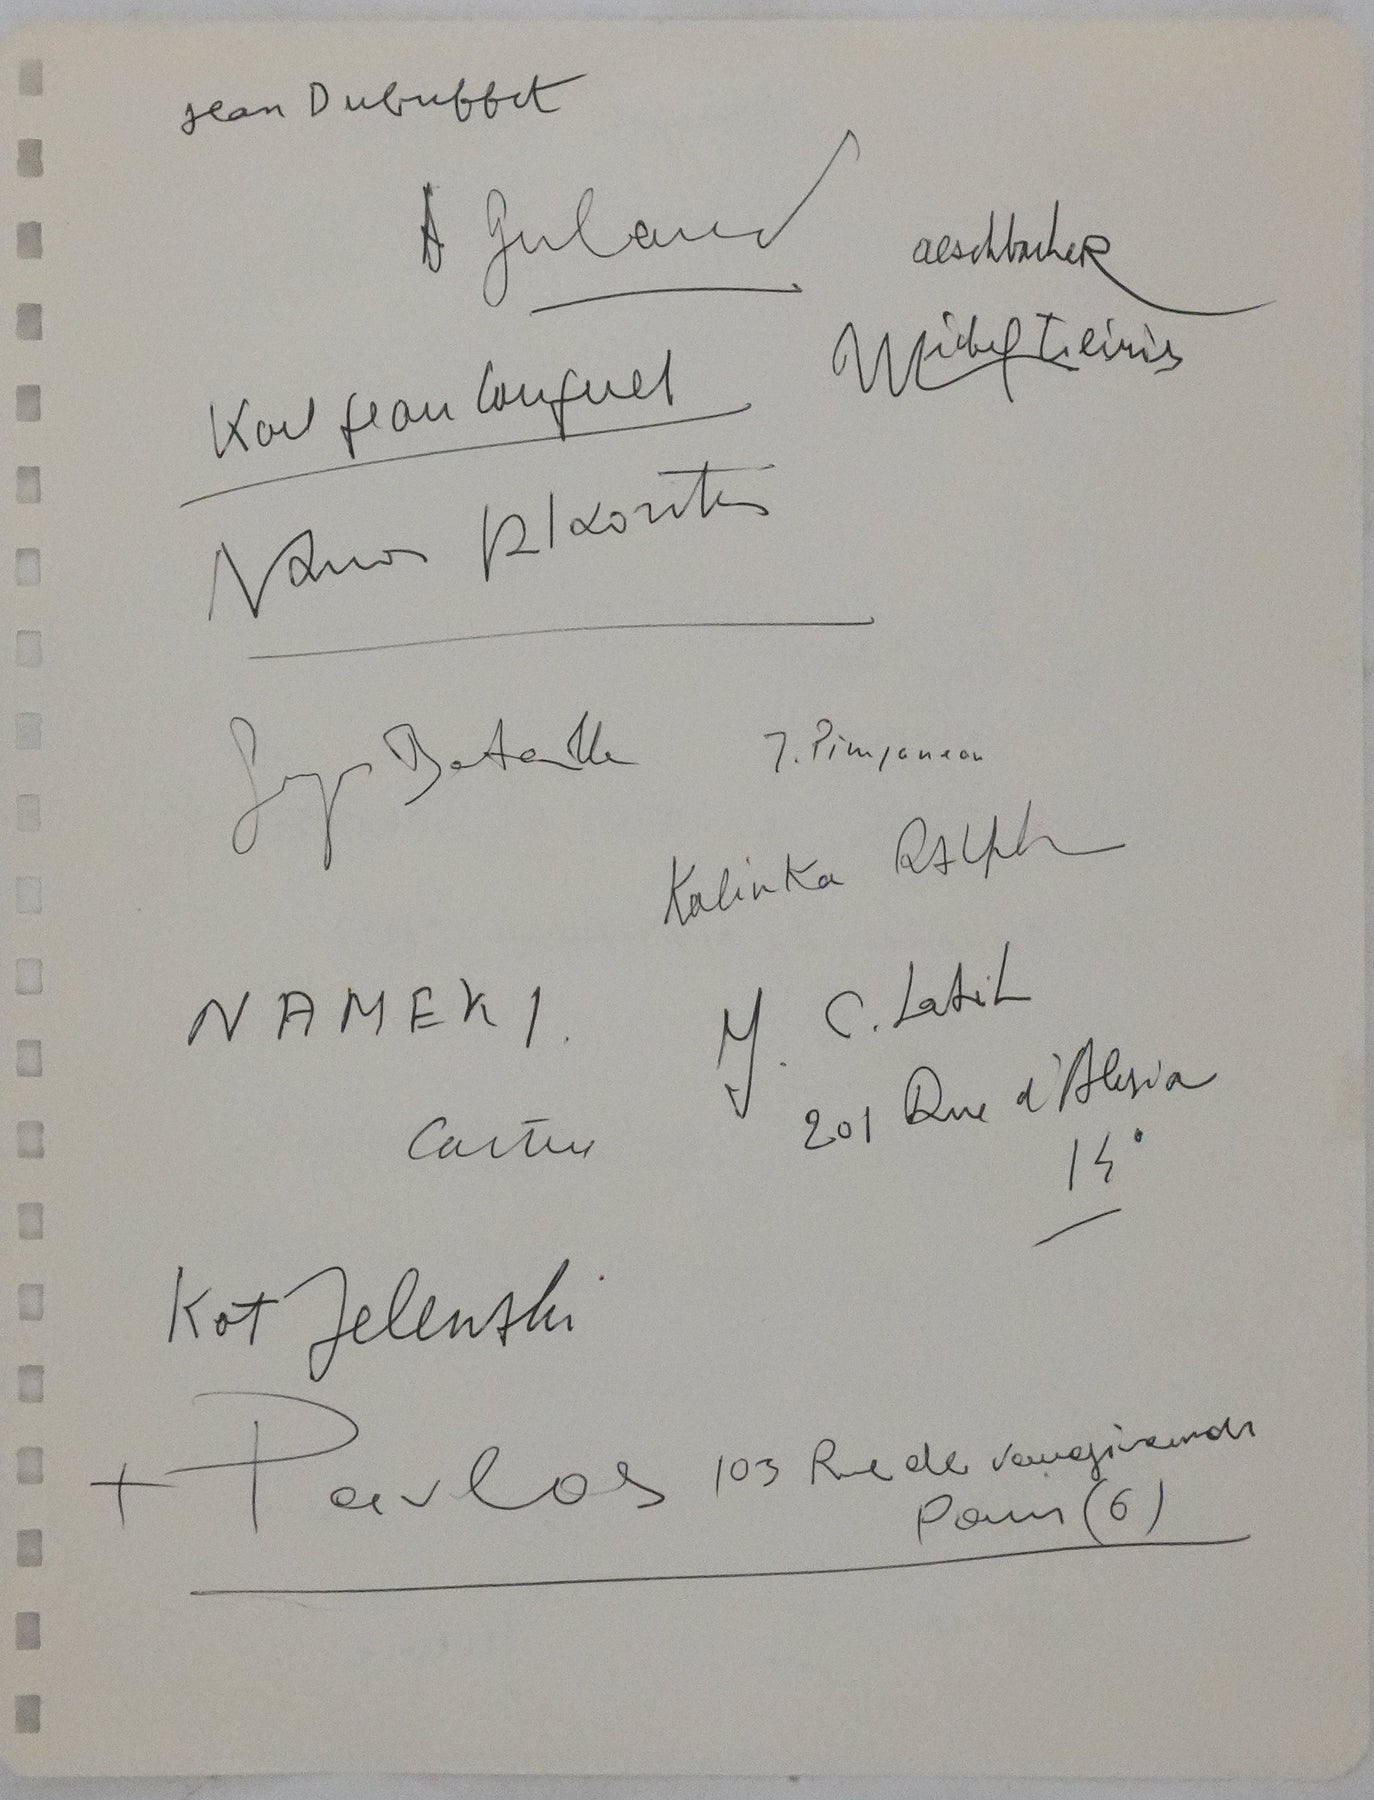 Jean Dubuffet
A Guland
aeschbacher
Michel Leiris
Karl Jean Longuet
Nanos Valaoritis
Georges Bataille
J. Pimpaneau
Kalinka Ralph
NAMEKI.
C. Latil
201 Rue d'Alesia
14°
Kot Jelenski
+ Pavlos 103 Rue de vaugirard
Paris (6)